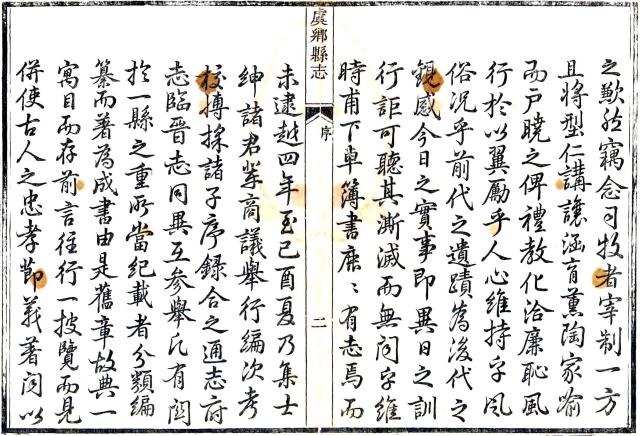 之歎然竊念司牧者宰制一方
且將型仁講讓涵育薰陶家喻
而戶曉之俾禮教化洽廉恥風
行於以翼勵乎人心維持乎風
俗況乎前代之遺蹟為後代之
觀感今日之實事即異日之訓
行詎可聽其澌滅而無聞乎維
時甫下車簿書鹿〻有志焉而
虞鄉縣志
序
二
未逮越四年至己酉夏乃集士
紳諸君等商議舉行編次考
校搏採諸子序録合之通志府
志臨晉志同異互參舉凡有関
於一縣之重所當紀載者分類編
纂而著為成書由是舊章故典一
寓目而存前言往行一披覽而見
併使古人之忠孝節義著聞以